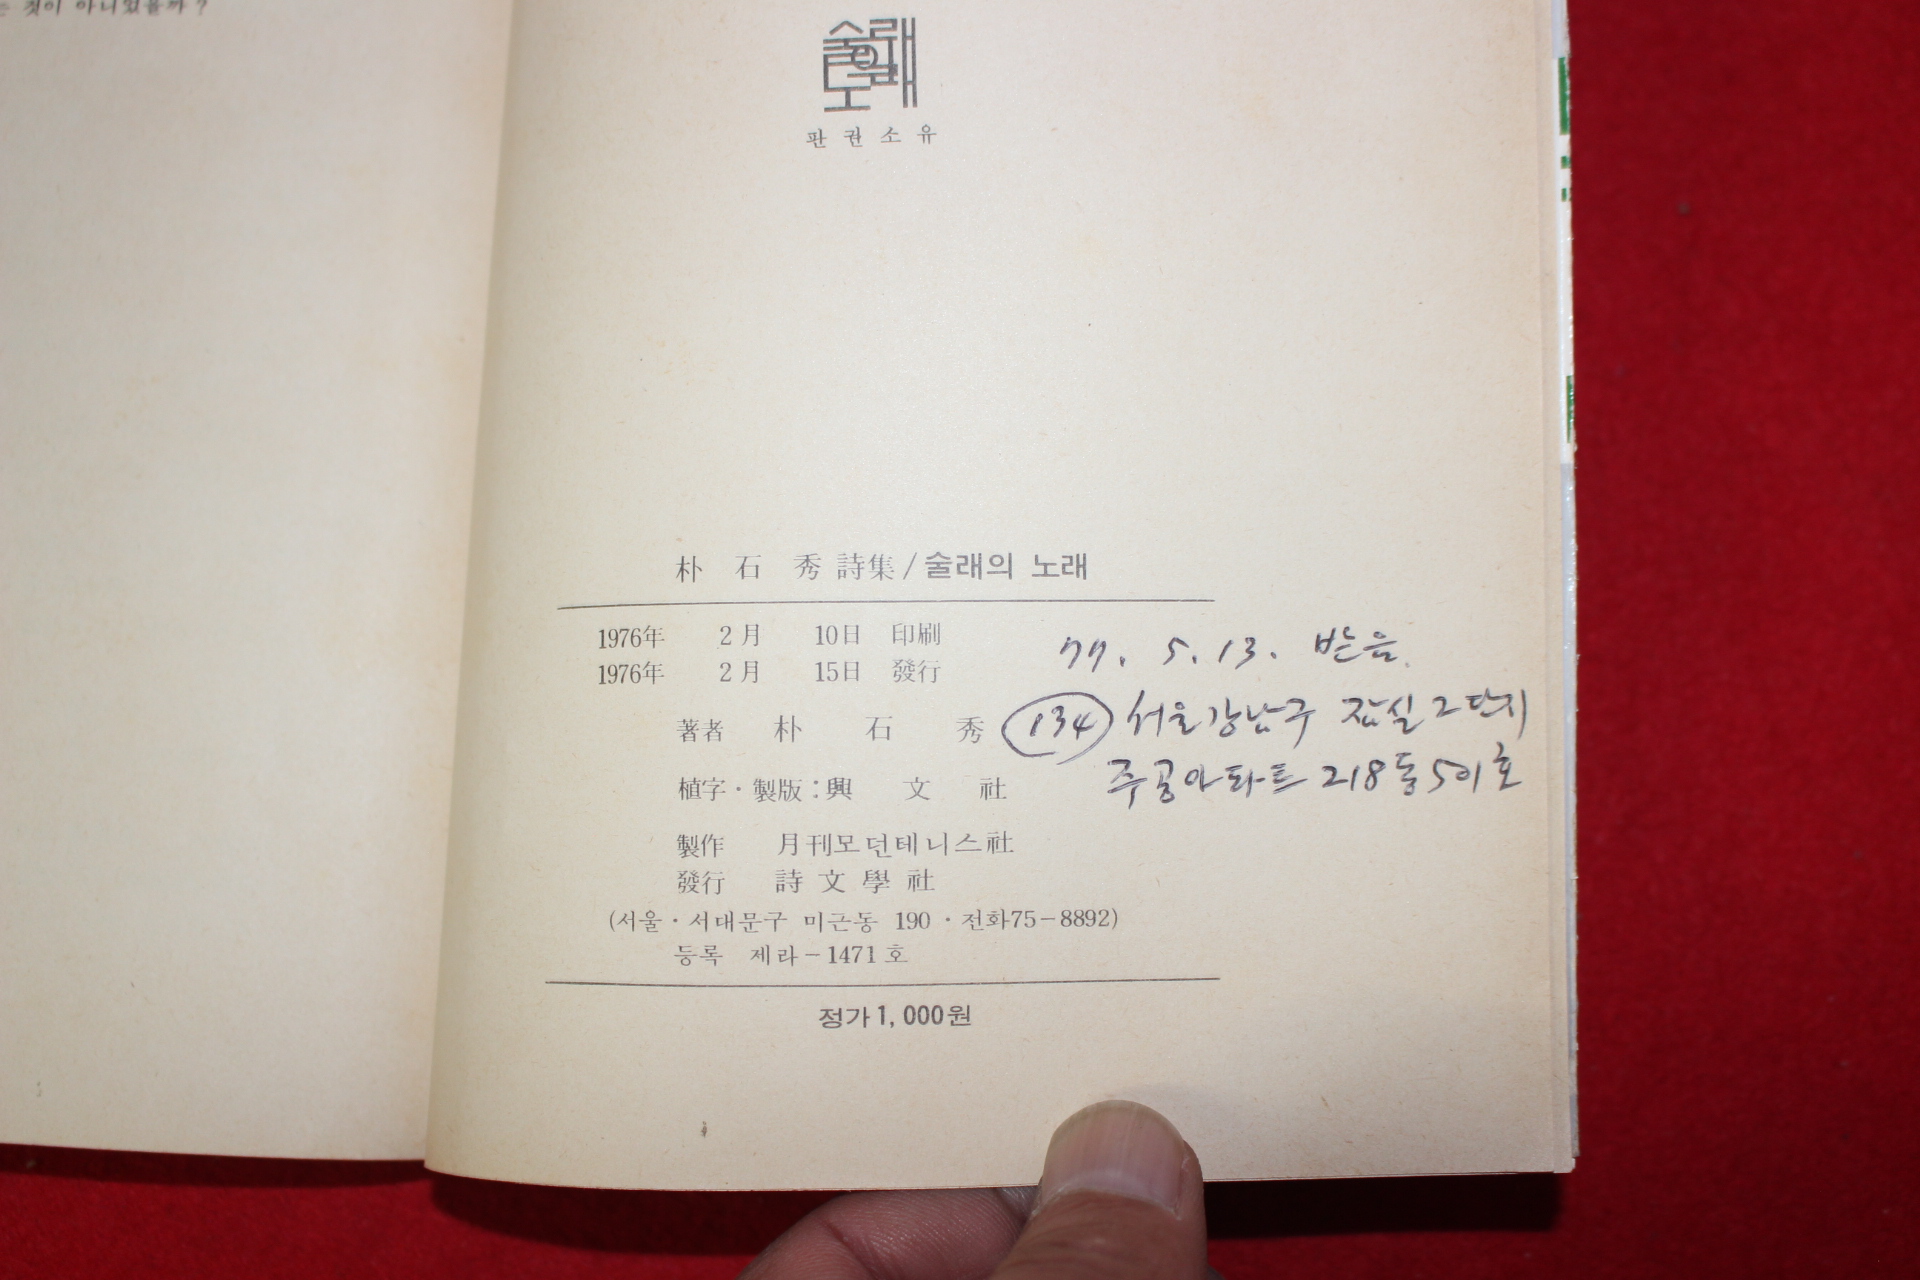 것이 아니었을까?
술래의
노래
판권소유
朴石秀 詩集/술래의 노래
1976年 2月 10日 印刷
1976年 2月 15日 發行
77. 5. 13. 받음.
著者 朴石秀
134 서울 강남구 잠실 2단지
植字·製版:興文社
주공아파트 218동 501호
製作 月刊모던테니스社
發行 詩文學社
(서울·서대문구 미근동 190·전화75-8892)
등록 제라-1471호
정가 1,000원